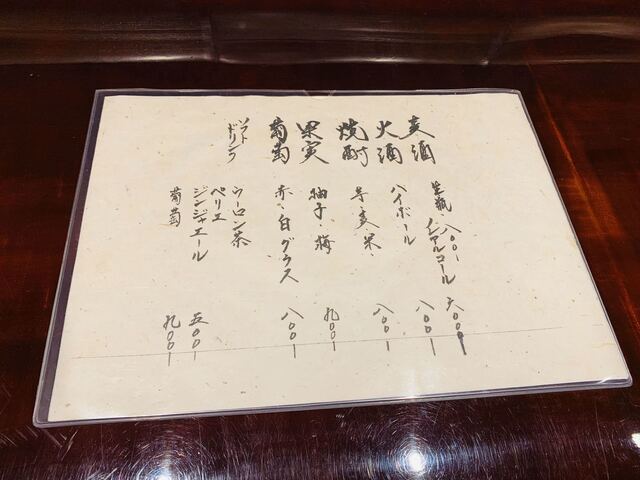 麦酒 生瓶・八〇〇- ノンアルコール 六〇〇-
火酒 ハイボール 八〇〇-
焼酎 芋・麦・米・ 八〇〇-
果実 柚子・梅 九〇〇-
葡萄 赤・白グラス 八〇〇-
ソフトドリンク ウーロン茶
ペリエ
ジンジャエール 五〇〇-
葡萄 九〇〇-